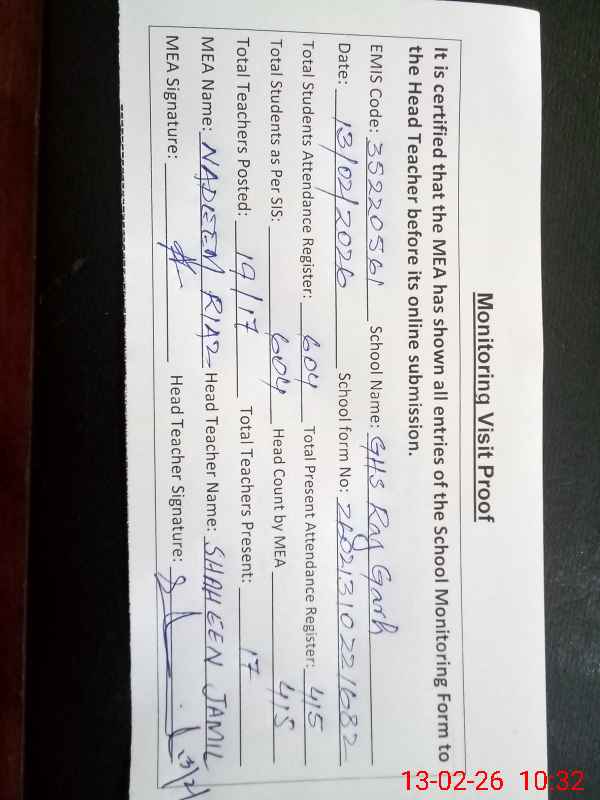 Monitoring Visit Proof
It is certified that the MEA has shown all entries of the School Monitoring Form to
the Head Teacher before its online submission.
EMIS Code: 35220561 School Name: GHS Raj Garh
Date: 13/02/2026 School form No: 26021310221682
Total Students Attendance Register: 604 Total Present Attendance Register: 415
Total Students as Per SIS: 604 Head Count by MEA 415
Total Teachers Posted: 19/17 Total Teachers Present: 17
MEA Name: NADEEM RIAZ Head Teacher Name: SHAHEEN JAMIL
MEA Signature: Head Teacher Signature:
13-02-26 10:32